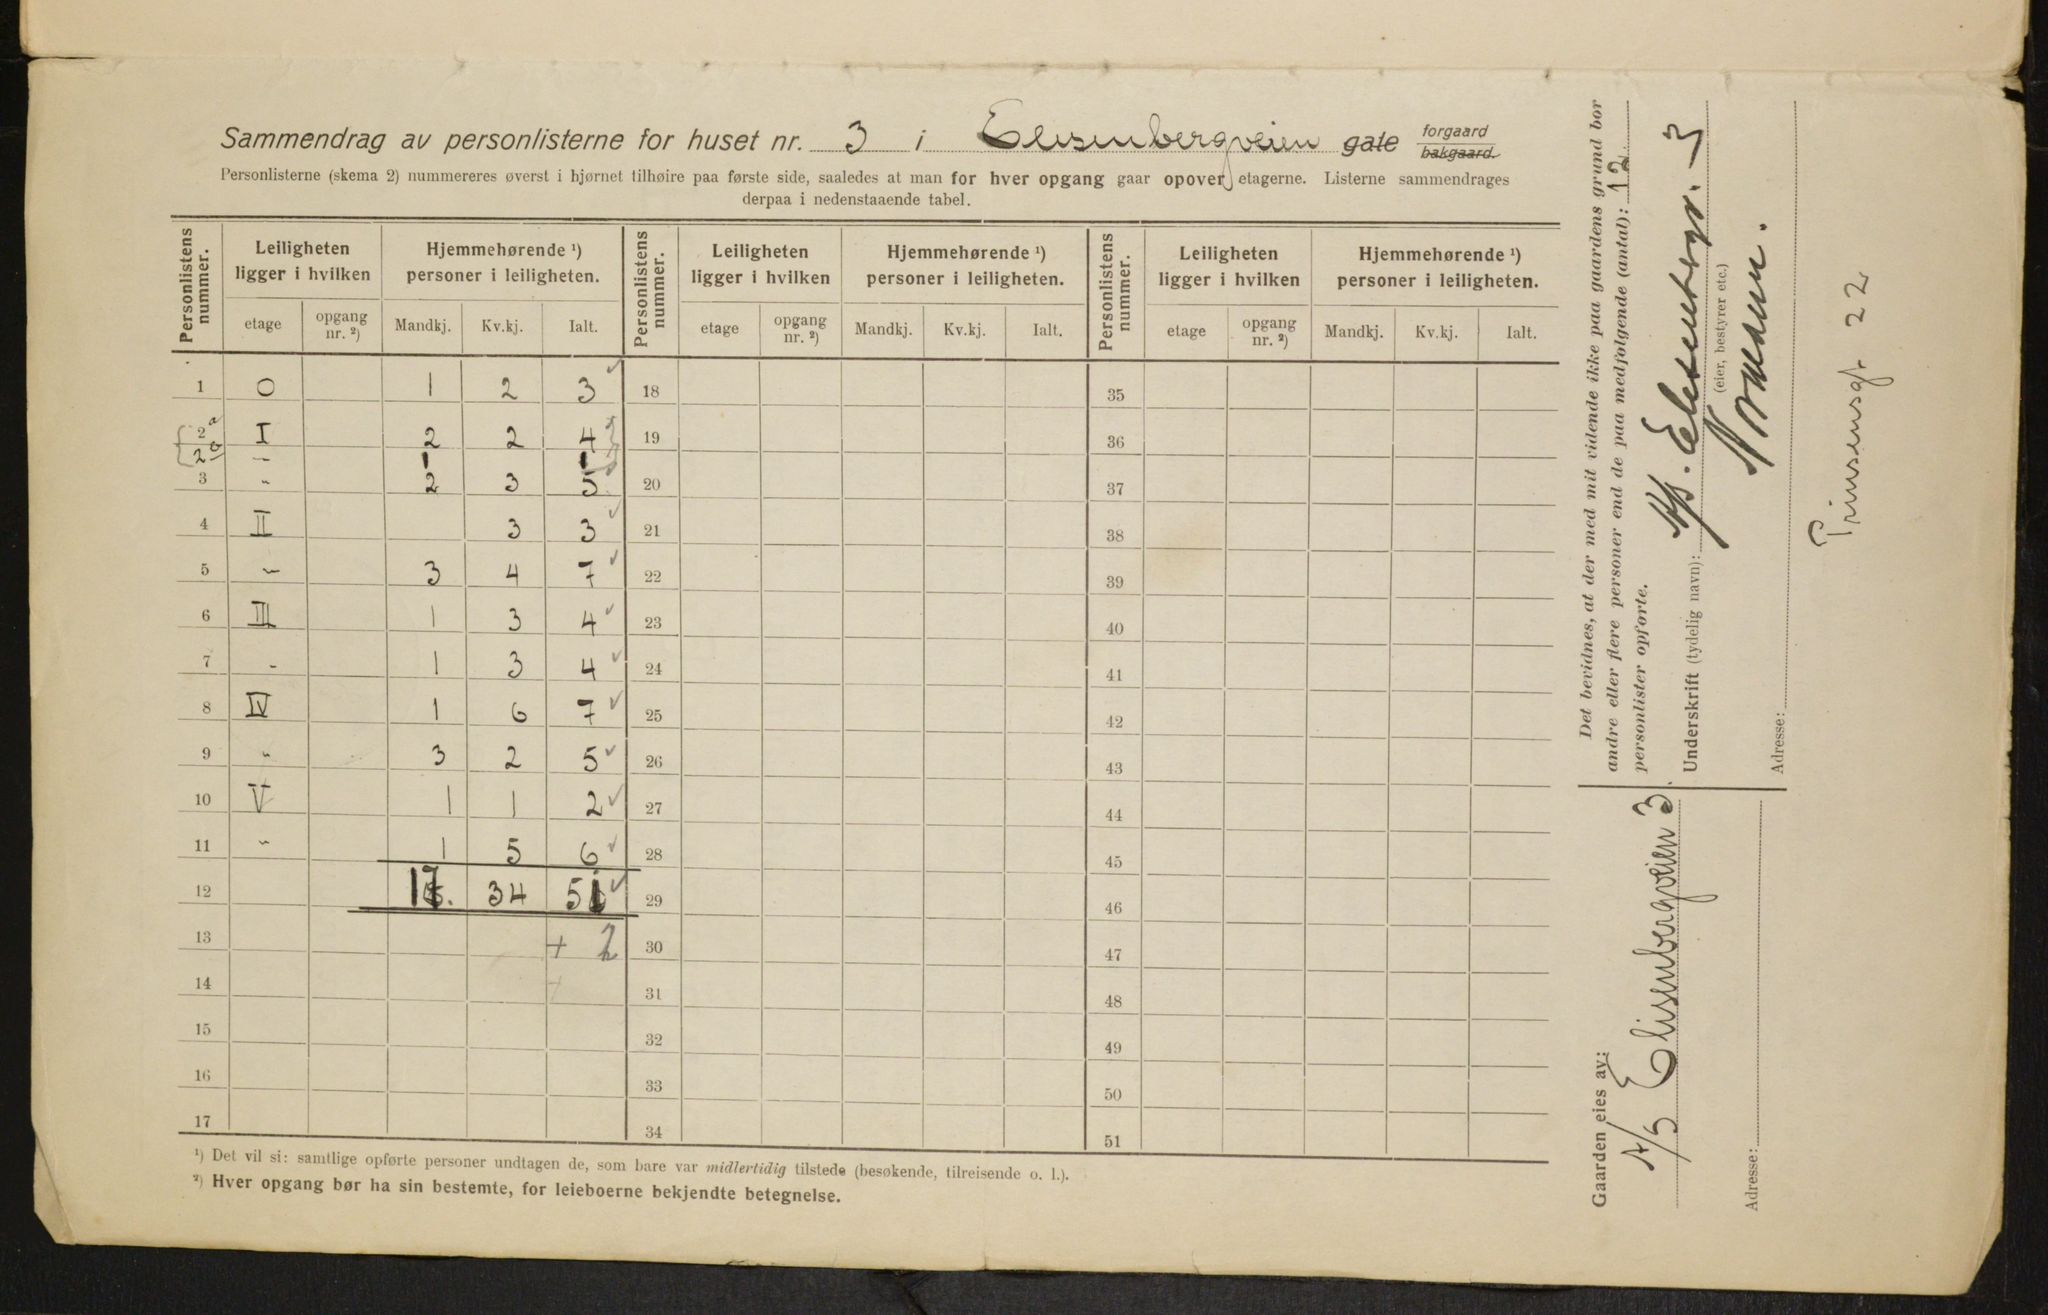 Sammendrag av personlisterne for huset nr. 3 i Elisenbergveien gate forgaard bakgaard.
Personlisterne (skema 2) nummereres øverst i hjørnet tilhøire paa første side, saaledes at man for hver opgang gaar opover etagerne. Listerne sammendrages
derpaa i nedenstaaende tabel.
Personlistens nummer. Leiligheten ligger i hvilken Hjemmehørende ¹) personer i leiligheten. Personlistens nummer. Leiligheten ligger i hvilken Hjemmehørende ¹) personer i leiligheten. Personlistens nummer. Leiligheten ligger i hvilken Hjemmehørende ¹) personer i leiligheten.
etage opgang nr. ²) Mandkj. Kv.kj. Ialt. etage opgang nr. ²) Mandkj. Kv.kj. Ialt. etage opgang nr. ²) Mandkj. Kv.kj. Ialt.
1 0 1 2 3 18 35
2 a I 2 2 4 19 36
2 b " 1 1
3 " 2 3 5 20 37
4 II 3 3 21 38
5 " 3 4 7 22 39
6 III 1 3 4 23 40
7 " 1 3 4 24 41
8 IV 1 6 7 25 42
9 " 3 2 5 26 43
10 V 1 1 2 27 44
11 " 1 5 6 28 45
12 17 34 51 29 46
13 + 2 30 47
14 + 31 48
15 32 49
16 33 50
17 34 51
¹) Det vil si: samtlige opførte personer undtagen de, som bare var midlertidig tilstede (besøkende, tilreisende o. l.).
²) Hver opgang bør ha sin bestemte, for leieboerne bekjendte betegnelse.
Det bevidnes, at der med mit vidende ikke paa gaardens grund bor
andre eller flere personer end de paa medfølgende (antal): 12
personlister opførte.
Underskrift (tydelig navn):
(eier, bestyrer etc.)
Adresse:
Prinsensgt 22
Gaarden eies av:
A/S Elisenbergveien 3.
Adresse: